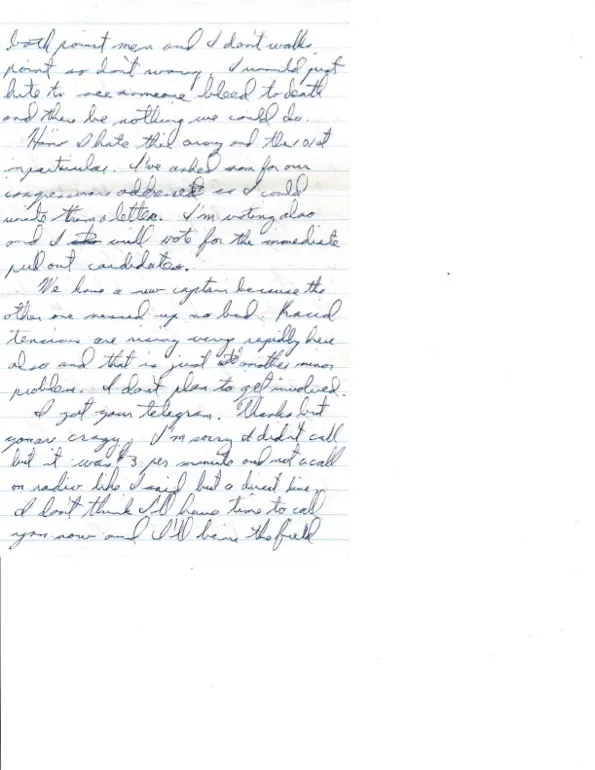 both point men and I don't walk
point so don't worry. I would just
hate to see someone bleed to death
and there be nothing we could do.
Hon I hate this army and the 101st
in particular. I've asked mom for our
congressmans address so I could
write them a letter. I'm voting also
and I will vote for the immediate
pull out candidates.
We have a new captain because the
other one messed up so bad. Racial
tensions are rising very rapidly here
also and that is just another minor
problem. I don't plan to get involved.
I got your telegram. Thanks but
you are crazy. I'm sorry I didn't call
but it was $3 per minute and not a call
on radio like I said but a direct line.
I don't think I'll have time to call
you now and I'll be in the field